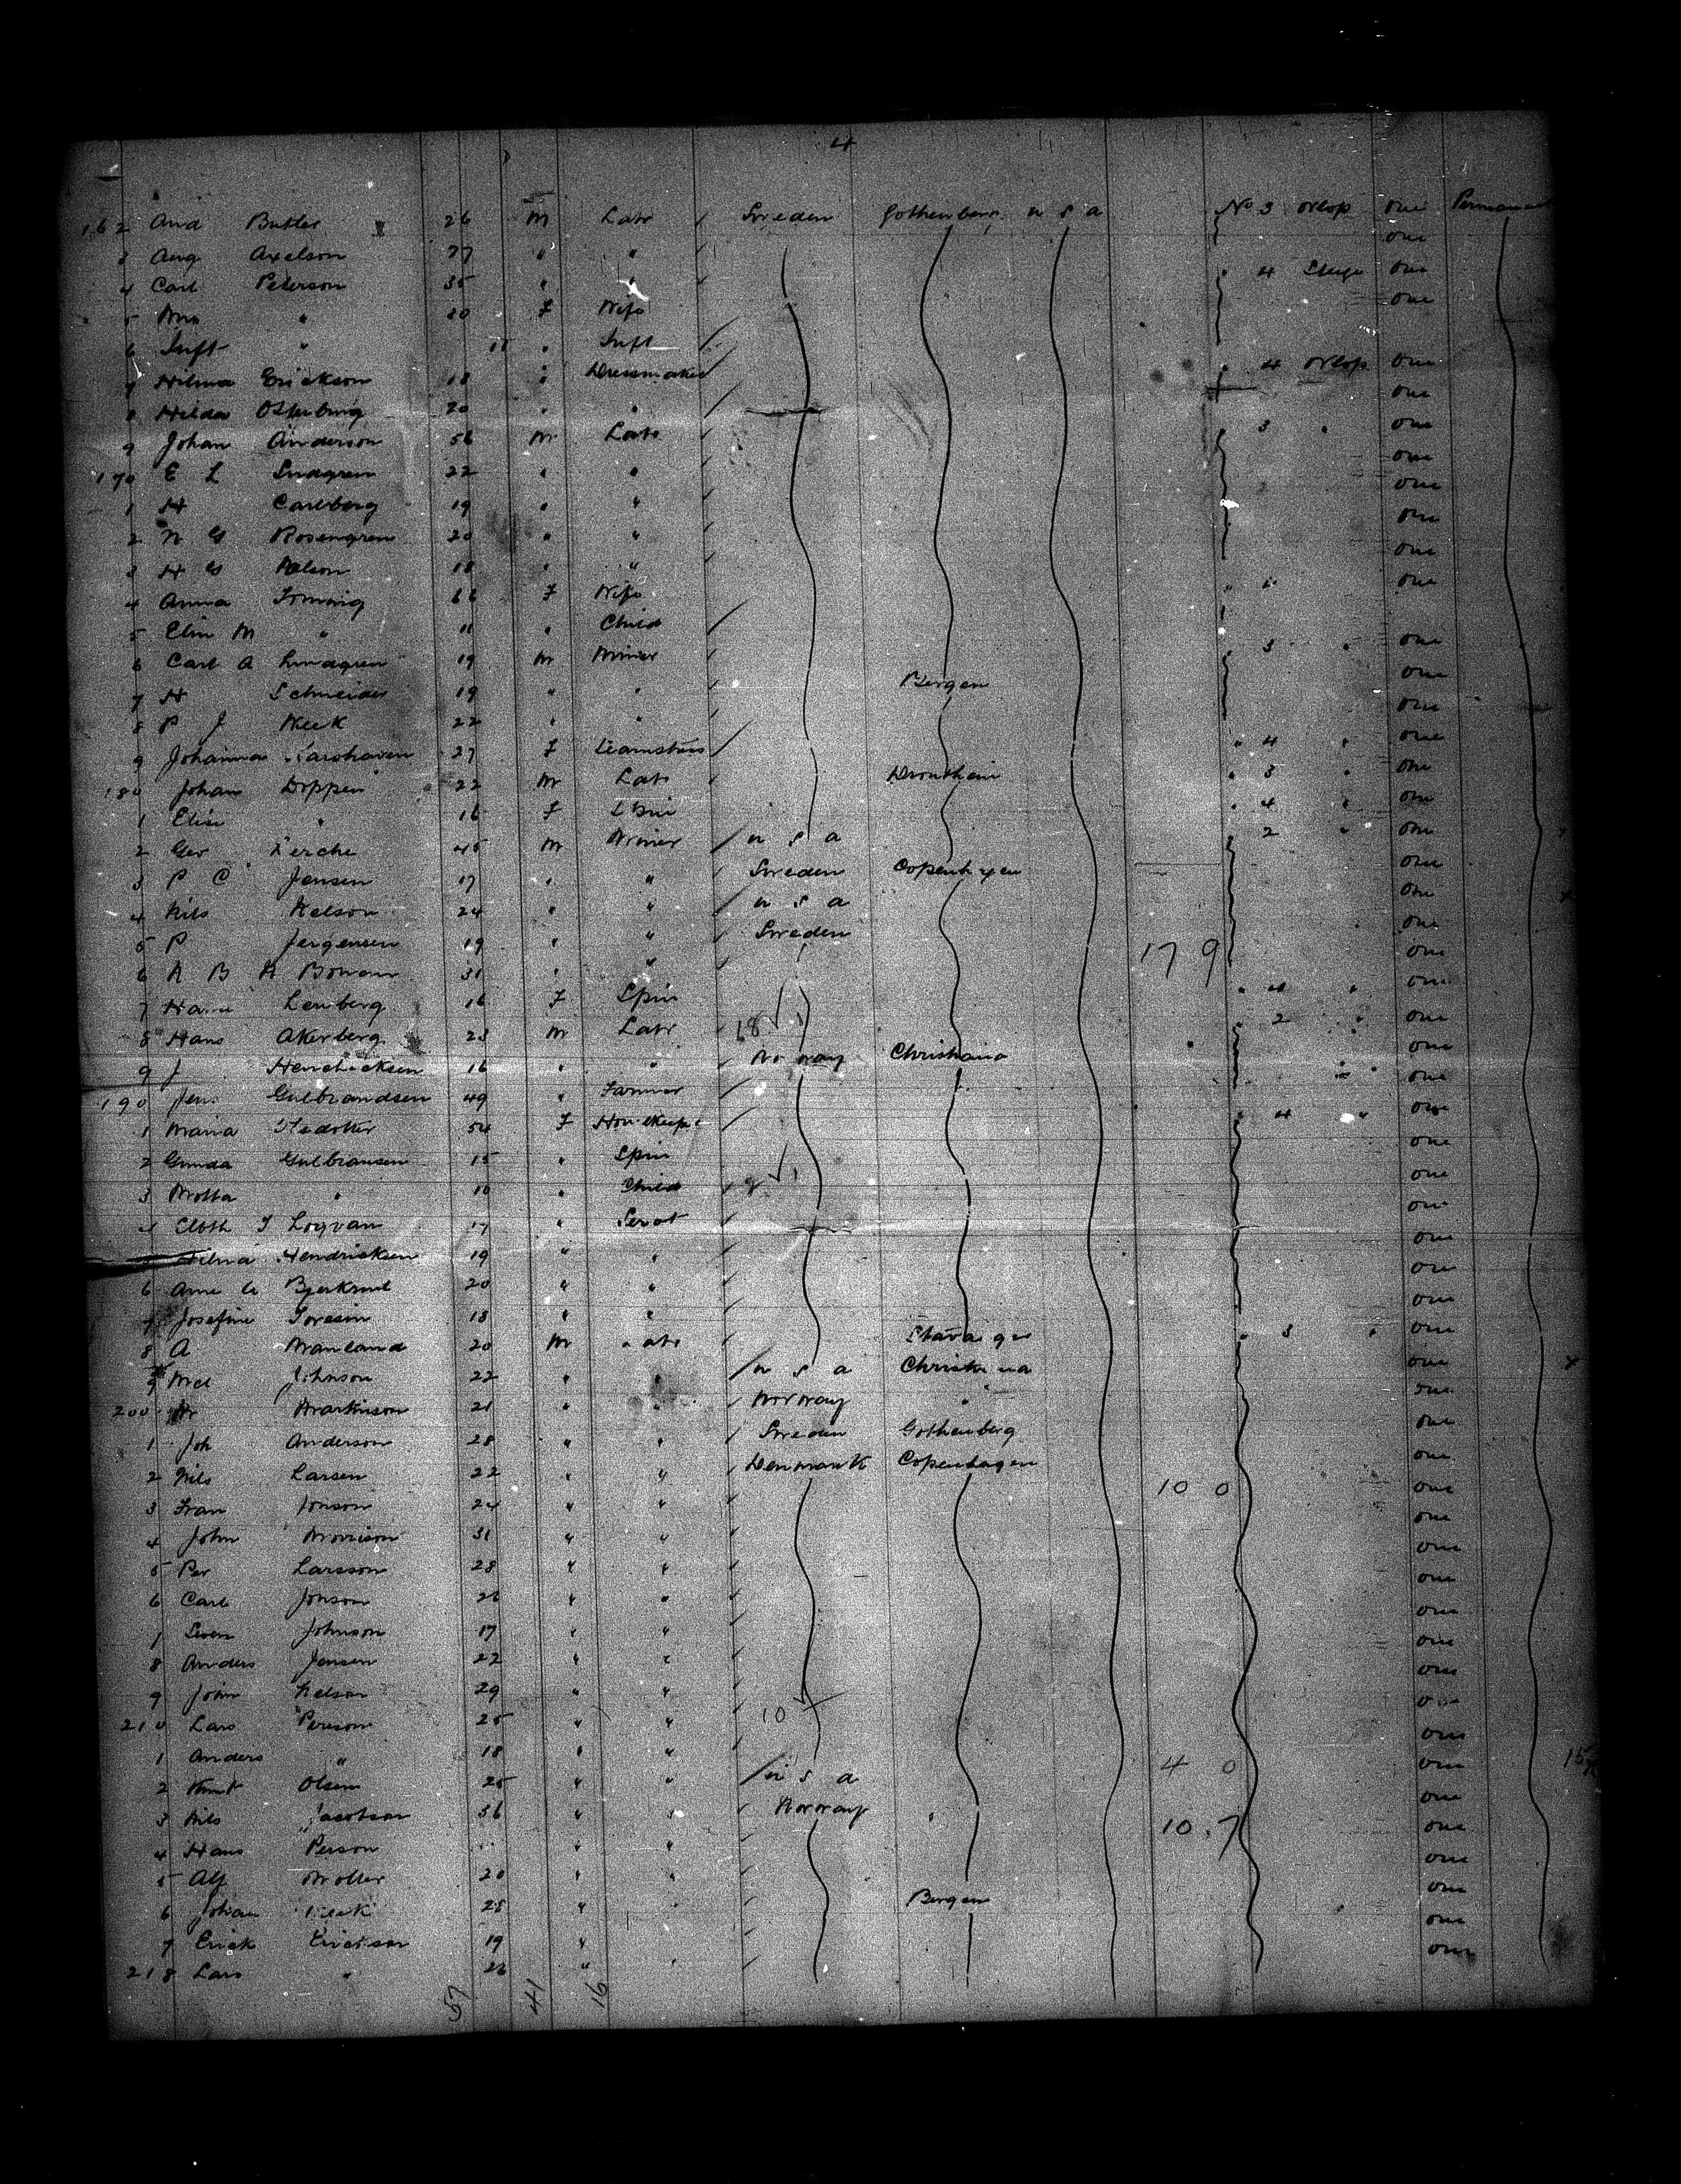 4
162 And Butler 26 M Labr Sweden Gothenberg U S A No 3 Orlop one Permanent
3 Aug Axelson 27 " " one
4 Carl Peterson 35 " " 4 Stege one
5 Mrs " 30 F Wife one
6 Inft " 11 " Inft
7 Hilma Erickson 18 " Dressmaker 4 Orlop one
8 Hilda 20 " " one
9 Johan Anderson 56 M Labr 3 " one
170 E L 22 " " one
1 H Carlberg 19 " " one
2 N G Rosengren 20 " " one
3 H G 18 " " one
4 Anna F Wife one
5 Elin M " 11 " Child
6 Carl A Lindgren 19 M Miner 3 " one
7 H Schneider 19 " " Bergen one
8 P J 22 " " one
9 Johanna 27 F 4 " one
180 Johan 22 M Labr Drontheim 3 " one
1 Elise " 16 F Spin 4 " one
2 Geo Lerche 45 M Miner U S A 2 " one
3 P C Jensen 17 " " Sweden Copenhagen one
4 Nils Nelson 24 " " U S A one
5 P Jergensen 19 " " Sweden one
6 N B H 31 " " 17 9 one
7 Lenberg 16 F Spin 4 " one
8 Hans Akerberg 23 M Labr 18 2 " one
9 J Hendricksen 16 " " Norway Christiania one
190 Jens Gulbrandsen 49 " Farmer one
1 Maria 54 F Housekeeper 4 " one
2 Gunda Gulbransen 15 " Spin one
3 " 10 " Child 9 one
4 Elbth 17 " Servt one
5 Hilma Hendricksen 19 " " one
6 Anne 20 " " one
7 Josefine 18 " " one
8 A 20 M Labr Stavanger 3 " one
9 Johnson 22 " " U S A Christiania one
200 Martinson 21 " " Norway " one
1 Joh Anderson 28 " " Sweden Gothenberg one
2 Nils Larsen 22 " " Denmark Copenhagen one
3 Fran Jonson 24 " " 10 0 one
4 John Morrison 31 " " one
5 Per Larsson 28 " " one
6 Carl Jonson 26 " " one
7 Sven Johnson 17 " " one
8 Anders Jensen 22 " " one
9 John Nelson 29 " " one
210 Lars Person 25 " " 10 one
1 Anders " 18 " " one
2 Knut Olsen 25 " " U S A 4 0 one 15
3 Nils Jacobson 36 " " Norway " one
4 Hans Person " " 10.7 one
5 Alf Moller 20 " " one
6 Johan 28 " " Bergen one
7 Erick Ericksen 19 " one
218 Lars " 26 " " one
57 41 16